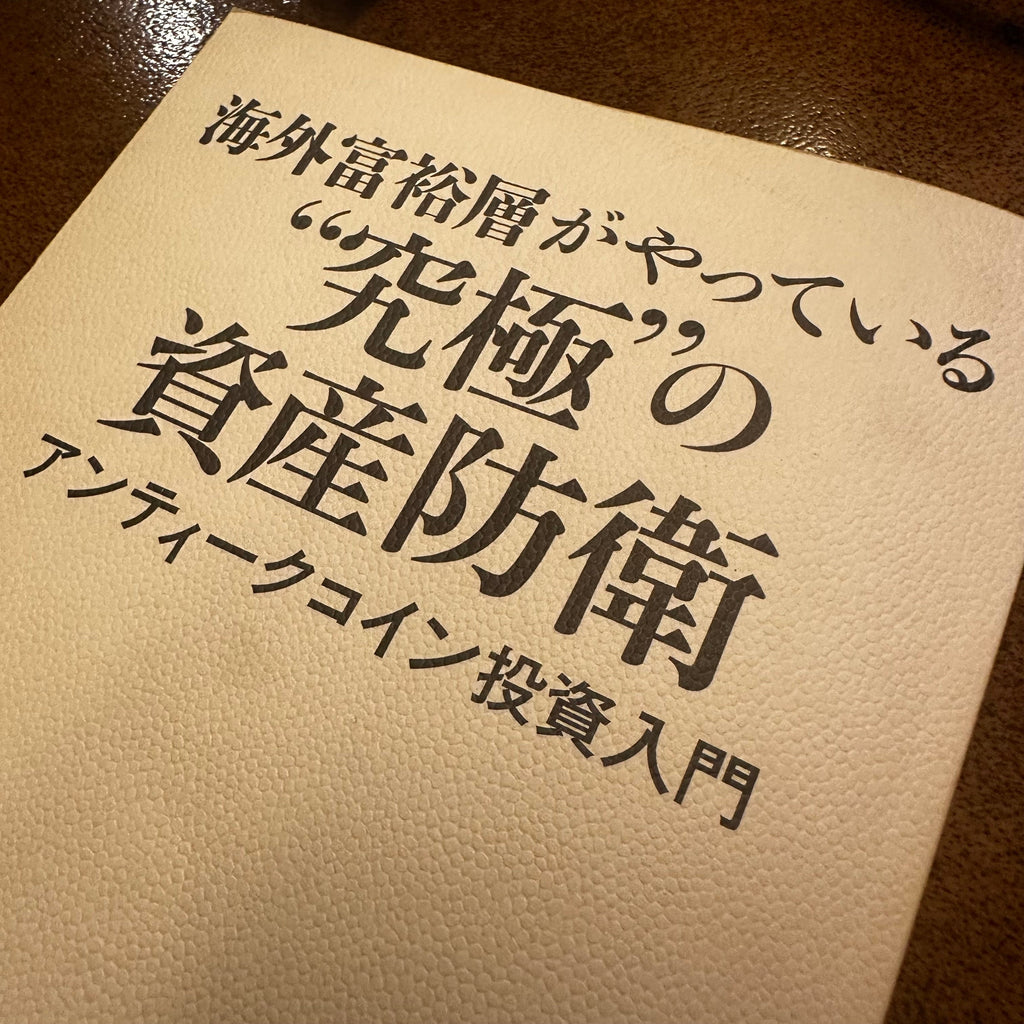 海外富裕層がやっている
“究極”の
資産防衛
アンティークコイン投資入門